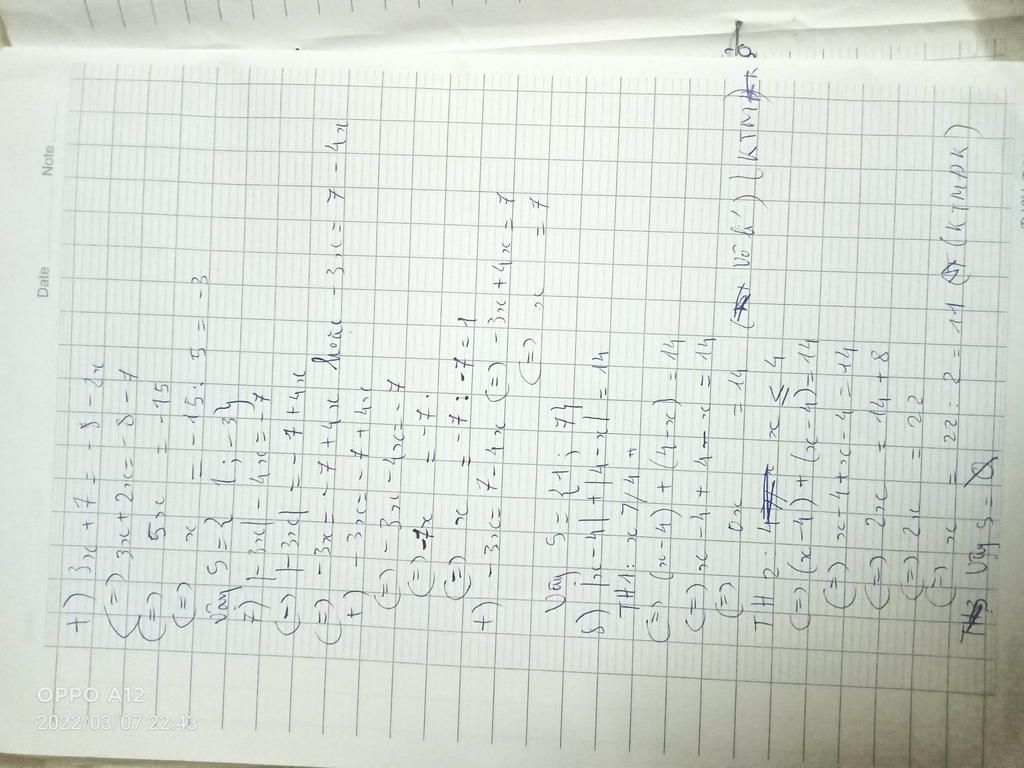 Note
Date
+) 3x + 7 = -8 - 2x
(=) 3x + 2x = -8 - 7
(=) 5x = -15
(=) x = -15 : 5 = -3
Vậy S = { 1 ; -3 }
7) |-3x| - 4x = -7
(=) |-3x| = -7 + 4x
(=) -3x = -7 + 4x hoặc -3x = 7 - 4x
+) -3x = -7 + 4x
(=) -3x - 4x = -7
(=) -7x = -7
(=) x = -7 : -7 = 1
+) -3x = 7 - 4x (=) -3x + 4x = 7
(=) x = 7
Vậy S = { 1 ; 7 }
8) |x - 4| + |4 - x| = 14
TH1: x 7/ 4
(=) (x - 4) + (4 - x) = 14
(=) x - 4 + 4 - x = 14
(=) 0x = 14 ( vô lí ) ( KTM
TH 2: x ≤ 4
(=) (x - 4) + (x - 4) = 14
(=) x - 4 + x - 4 = 14
(=) 2x = 14 + 8
(=) 2x = 22
(=) x = 22 : 2 = 11 ( KTMĐK )
Vậy S = Ø
OPPO A12
2022/03/07 22:43